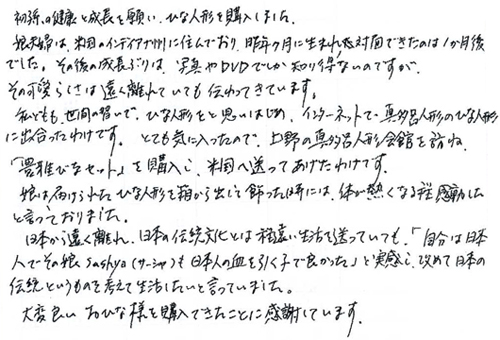 初孫の健康と成長を願い、ひな人形を購入しました。
娘夫婦は、米国のインディアナ州に住んでおり、昨年9月に生まれ、対面できたのは1か月後
でした。その後の成長ぶりは、写真やDVDでしか知り得ないのですが、
その可愛らしさは遠く離れていても伝わってきています。
私どもも世間の習いで、ひな人形をと思いはじめ、インターネットで、真多呂人形のひな人形
に出会ったわけです。とても気に入ったので、上野の真多呂人形会館を訪ね、
「雅びなセット」を購入し、米国へ送ってあげたわけです。
娘は届けられたひな人形を箱から出して飾った時には、体が熱くなる程感動した
と言っておりました。
日本から遠く離れ、日本の伝統文化とは程遠い生活を送っていても、「自分は日本
人でその娘sashya(サーシャ)も日本人の血を引く子で良かった」と実感し、改めて日本の
伝統というものを考えて生活したいと言っていました。
大変良いおひな様を購入できたことに感謝しています。